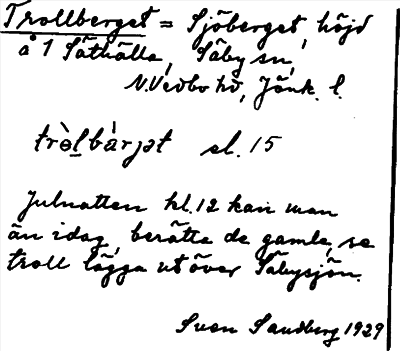 Trollberget = Sjöberget, höjd
å 1 Säthälla, Säby sn,
N. Vedbo hd, Jönk. l.
tròlbàrjət sl. 15
Julnatten kl. 12 kan man
än idag, berätta de gamla, se
troll lägga ut över Säbysjön.
Sven Sandberg 1929